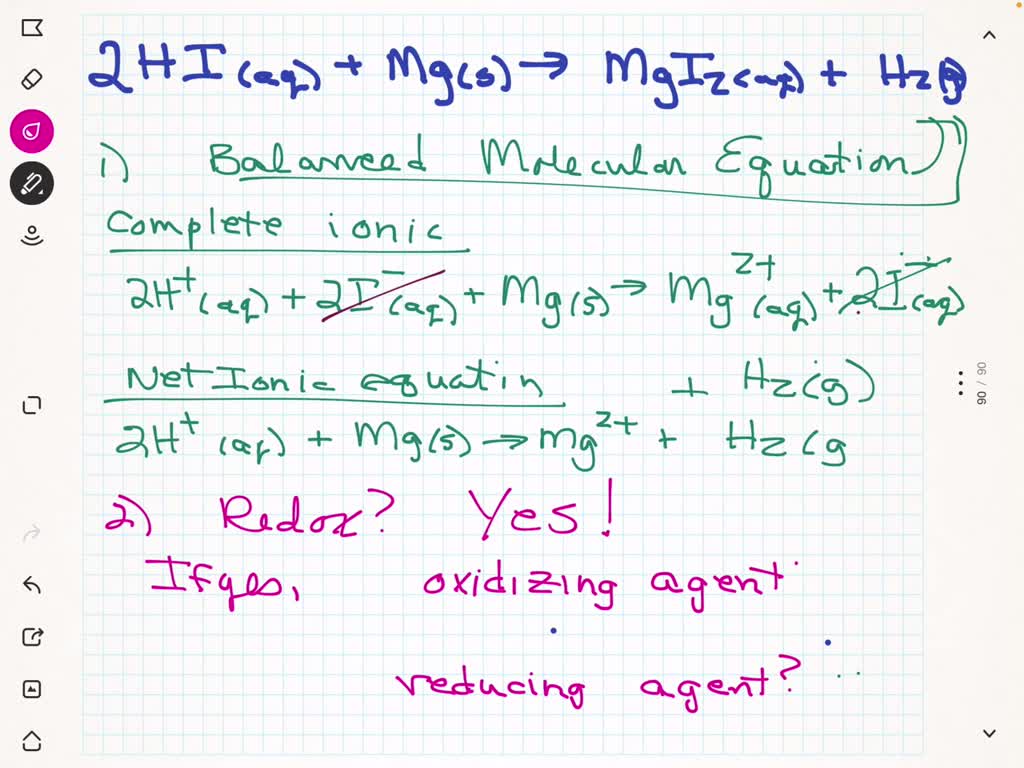 2HI(aq) + Mg(s) → MgI2(aq) + H2(g)
1) Balanced Molecular Equation
Complete ionic
2H⁺(aq) + 2I⁻(aq) + Mg(s) → Mg²⁺(aq) + 2I⁻(aq)
+ H2(g)
Net Ionic equatin
2H⁺(aq) + Mg(s) → Mg²⁺ + H2(g
2) Redox? Yes!
If yes, oxidizing agent
reducing agent?
90 / 90